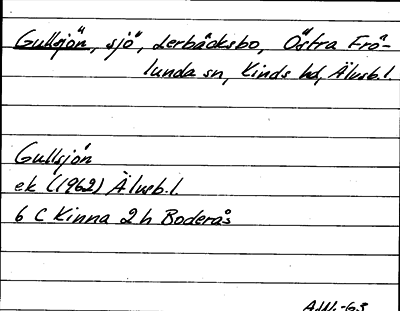 Gullsjön, sjö, Lerbäcksbo, Östra Frö-
lunda sn, Kinds hd, Älvsb. l
Gullsjön
ek (1962) Älvsb. l
6 C Kinna 2 h Boderås